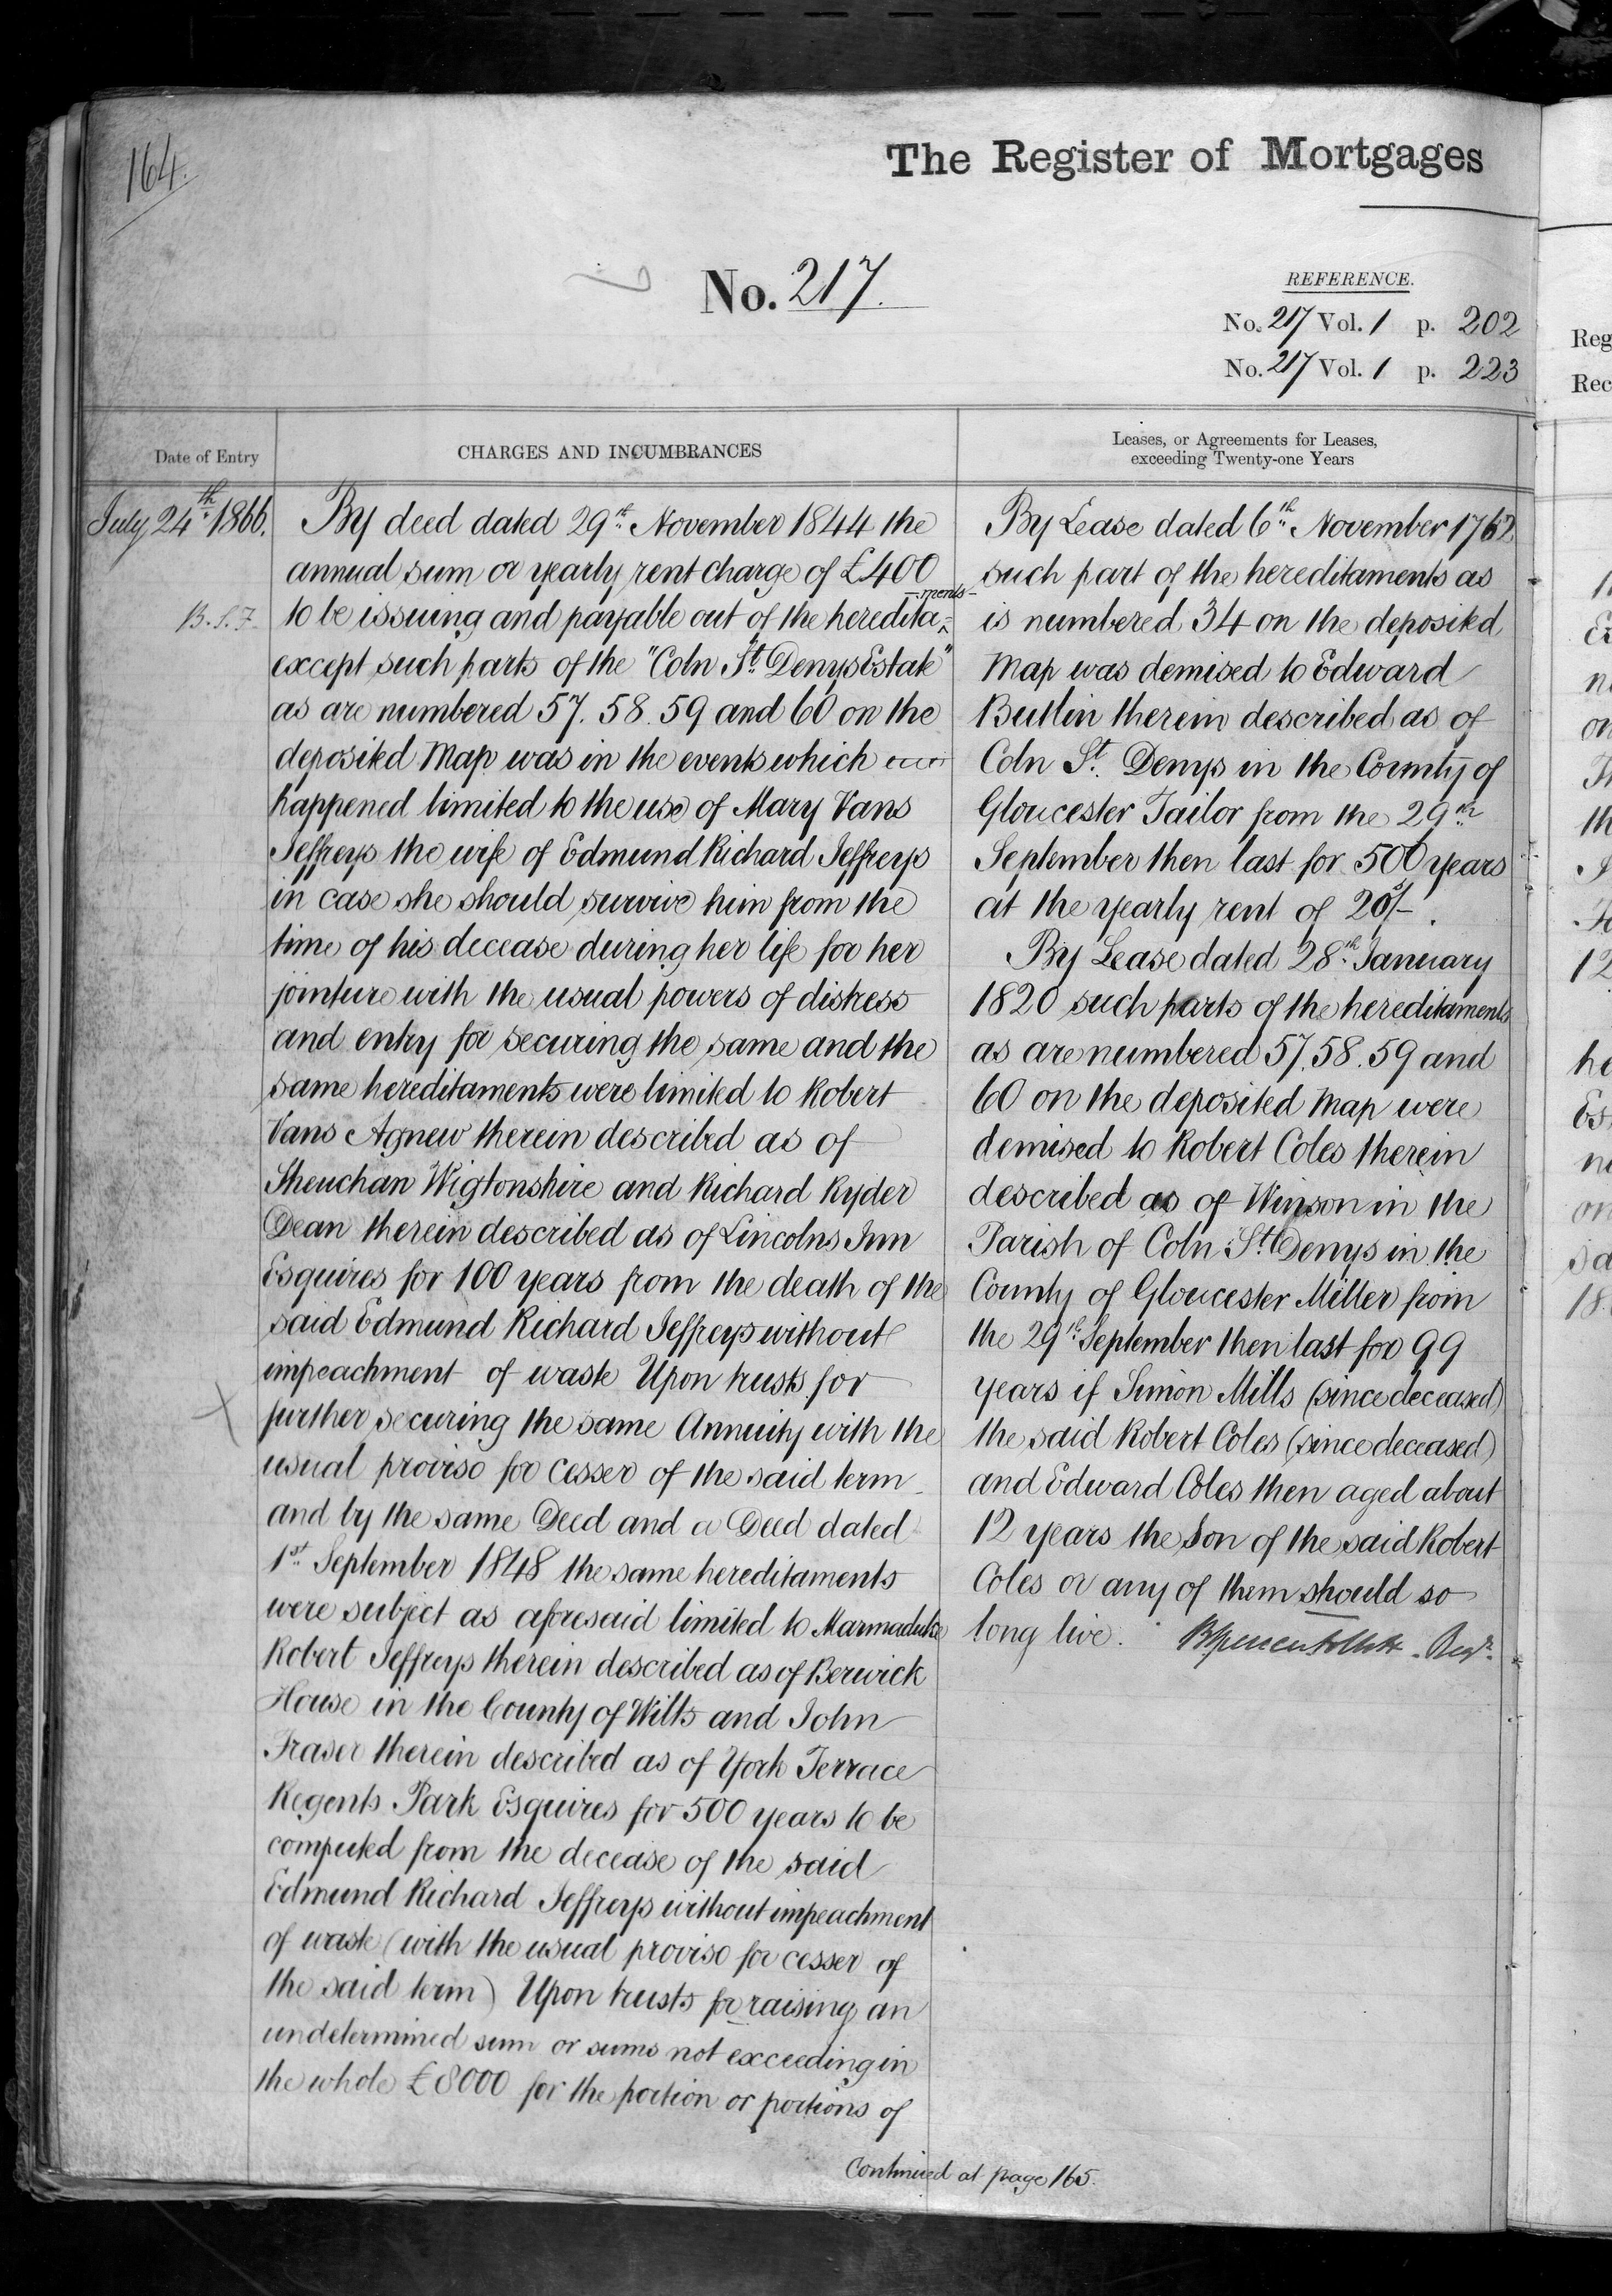 164.
The Register of Mortgages
No. 217.
REFERENCE.
No. 217 Vol. 1 p. 202
No. 217 Vol. 1 p. 223
Date of Entry
CHARGES AND INCUMBRANCES
Leases, or Agreements for Leases,
exceeding Twenty-one Years
July 24th 1866.
B.S.F.
By deed dated 29th November 1844 the
annual sum or yearly rent charge of £400
to be issuing and payable out of the heredita-ments
except such parts of the "Coln St. Denys Estate"
as are numbered 57. 58. 59 and 60 on the
deposited Map was in the events which
happened limited to the use of Mary Vans
Jeffreys the wife of Edmund Richard Jeffreys
in case she should survive him from the
time of his decease during her life for her
jointure with the usual powers of distress
and entry for securing the same and the
same hereditaments were limited to Robert
Vans Agnew therein described as of
Sheuchan Wigtonshire and Richard Ryder
Dean therein described as of Lincolns Inn
Esquires for 100 years from the death of the
said Edmund Richard Jeffreys without
impeachment of waste Upon trusts for
further securing the same Annuity with the
usual proviso for Cesser of the said term
and by the same Deed and a Deed dated
1st September 1848 the same hereditaments
were subject as aforesaid limited to Marmaduke
Robert Jeffreys therein described as of Berwick
House in the County of Wilts and John
Fraser therein described as of York Terrace
Regents Park Esquires for 500 years to be
computed from the decease of the said
Edmund Richard Jeffreys without impeachment
of waste (with the usual proviso for cesser of
the said term) Upon trusts for raising an
undetermined sum or sums not exceeding in
the whole £8000 for the portion or portions of
Continued at page 165.
By Lease dated 6th November 1762
such part of the hereditaments as
is numbered 34 on the deposited
Map was demised to Edward
Butlin therein described as of
Coln St. Denys in the County of
Gloucester Tailor from the 29th
September then last for 500 years
at the yearly rent of 20s/-.
By Lease dated 28th January
1820 such parts of the hereditaments
as are numbered 57. 58. 59 and
60 on the deposited Map were
demised to Robert Coles therein
described as of Winson in the
Parish of Coln St. Denys in the
County of Gloucester Miller from
the 29th September then last for 99
years if Simon Mills (since deceased)
the said Robert Coles (since deceased)
and Edward Coles then aged about
12 years the Son of the said Robert
Coles or any of them should so
long live.
Reg
Rec